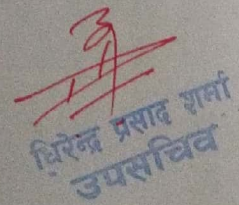 धिरेन्द्र प्रसाद शर्मा
उपसचिव